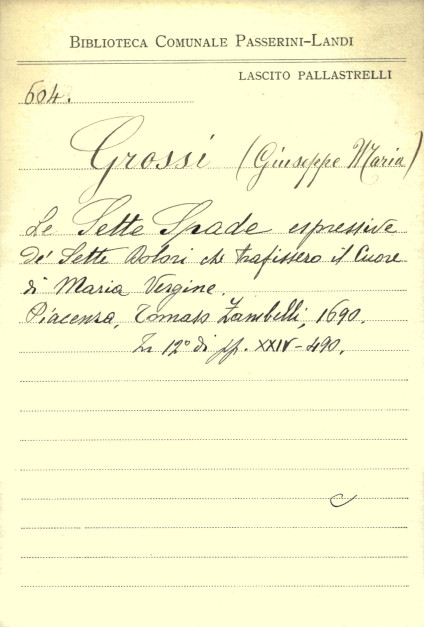 BIBLIOTECA COMUNALE PASSERINI-LANDI
LASCITO PALLASTRELLI
604.
Grossi (Giuseppe Maria)
Le Sette Spade espressive
de' Sette Dolori che trafissero il Cuore
di Maria Vergine.
Piacenza, Tomaso Zambelli, 1690.
In 12° di pp. XXIV-490.